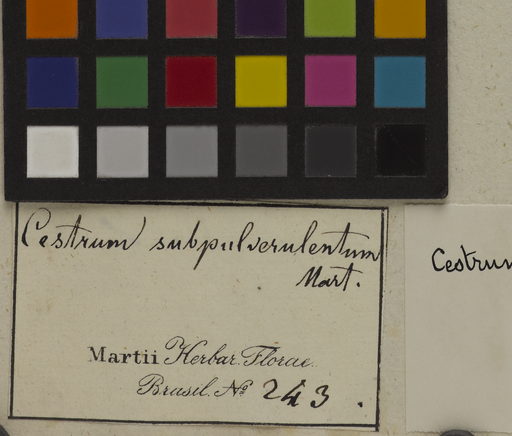 Cestrum subpulverulentum
Mart.
Martii Herbar. Florae
Brasil. No 243.
Cestrum